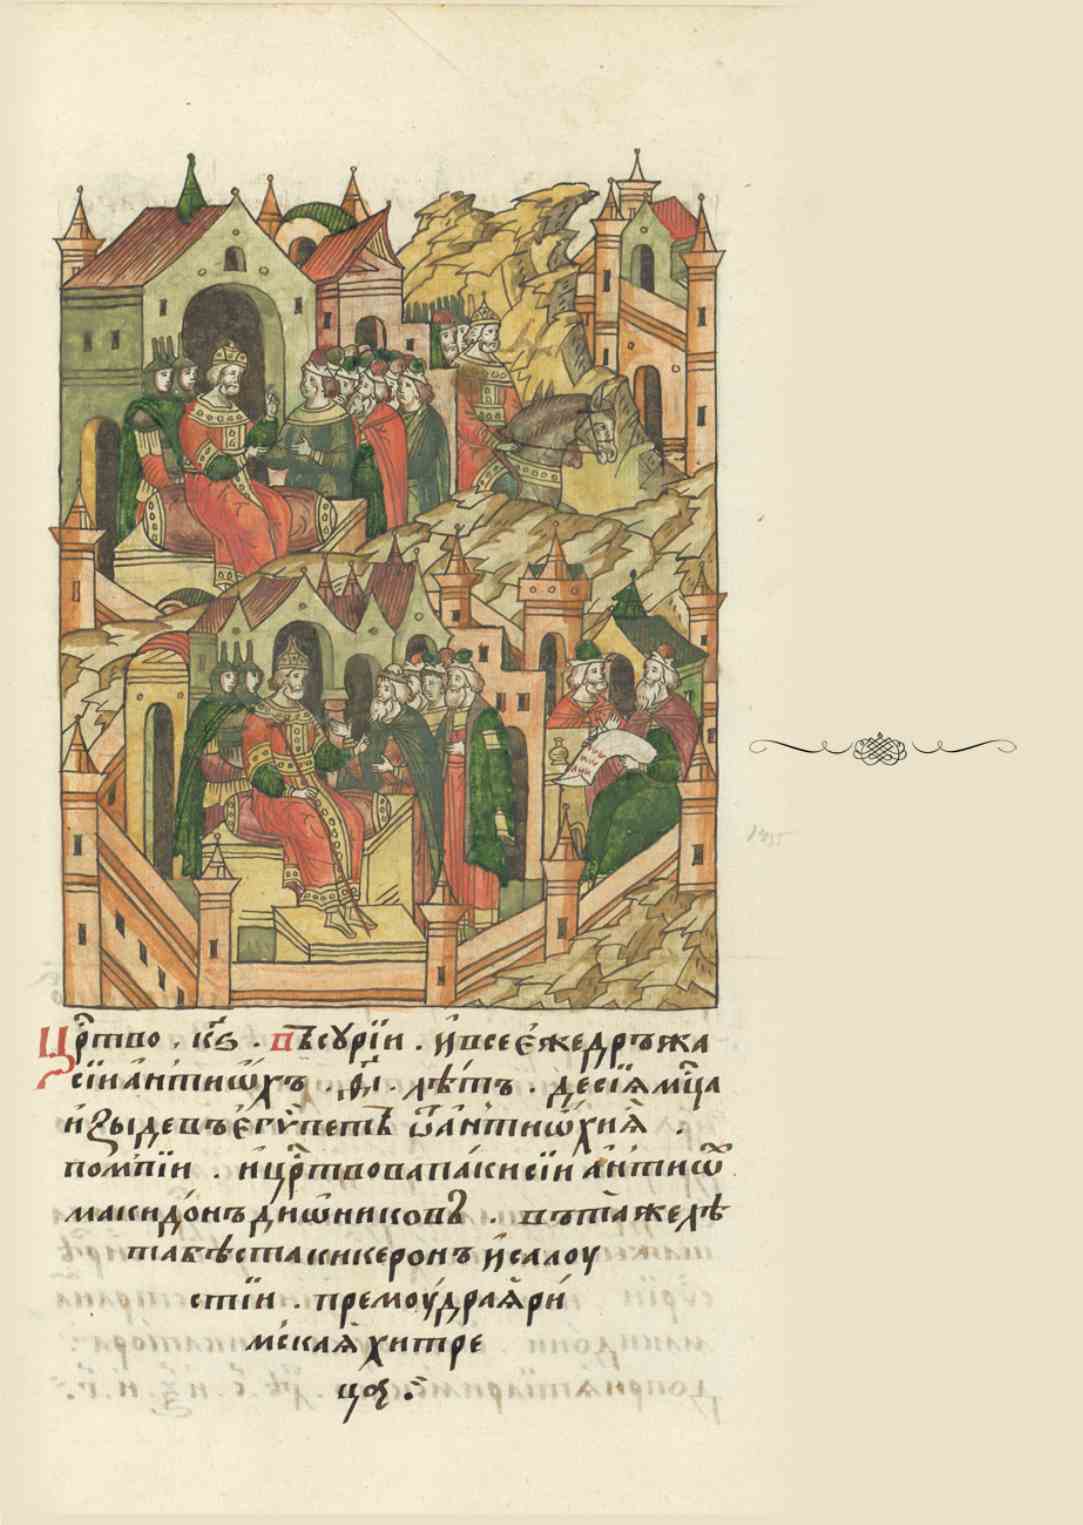 Црⷭ҇тво . к҃ѕ . в҆ъсѹрїи . и҆всее҆жедръжа
сїиа҆нтиѡ҆хъ . д҃і . лѣⷮтъ . десїѧмцⷭ҇а
и҆зыдевъегѵ́петъ ѿа҆нтиѡ҆хиѧ .
помпїи . ицрⷭ҇твовапа́кисїи а҆нтиѡⷯ
македо́нъдиѡ҆никовъ . вътаꙗжелѣ
табѣстакикеронъ и҆салоу
стїи . премоу́драꙗ҆ри́
мскаꙗ҆хитре
цоѕ .